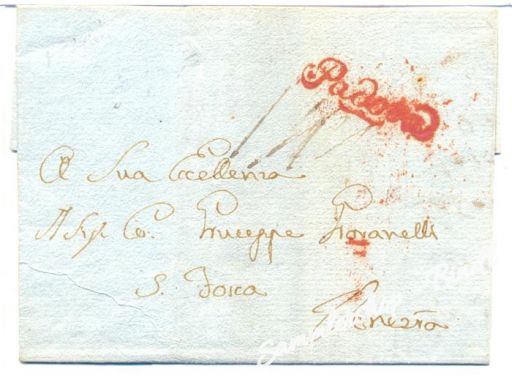 Padova
A Sua Eccellenza
Il Sig.r Co. Giuseppe Giovanelli
S. Fosca
Venezia